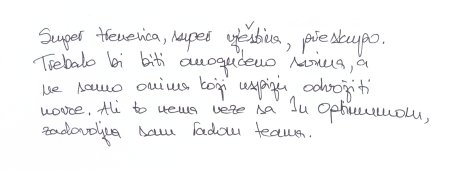 Super trenerica, super vještina, preskupo.
Trebalo bi biti omogućeno svima, a
ne samo onima koji uspiju odvojiti
novce. Ali to nema veze sa In Optimumom,
zadovoljna sam radom teama.